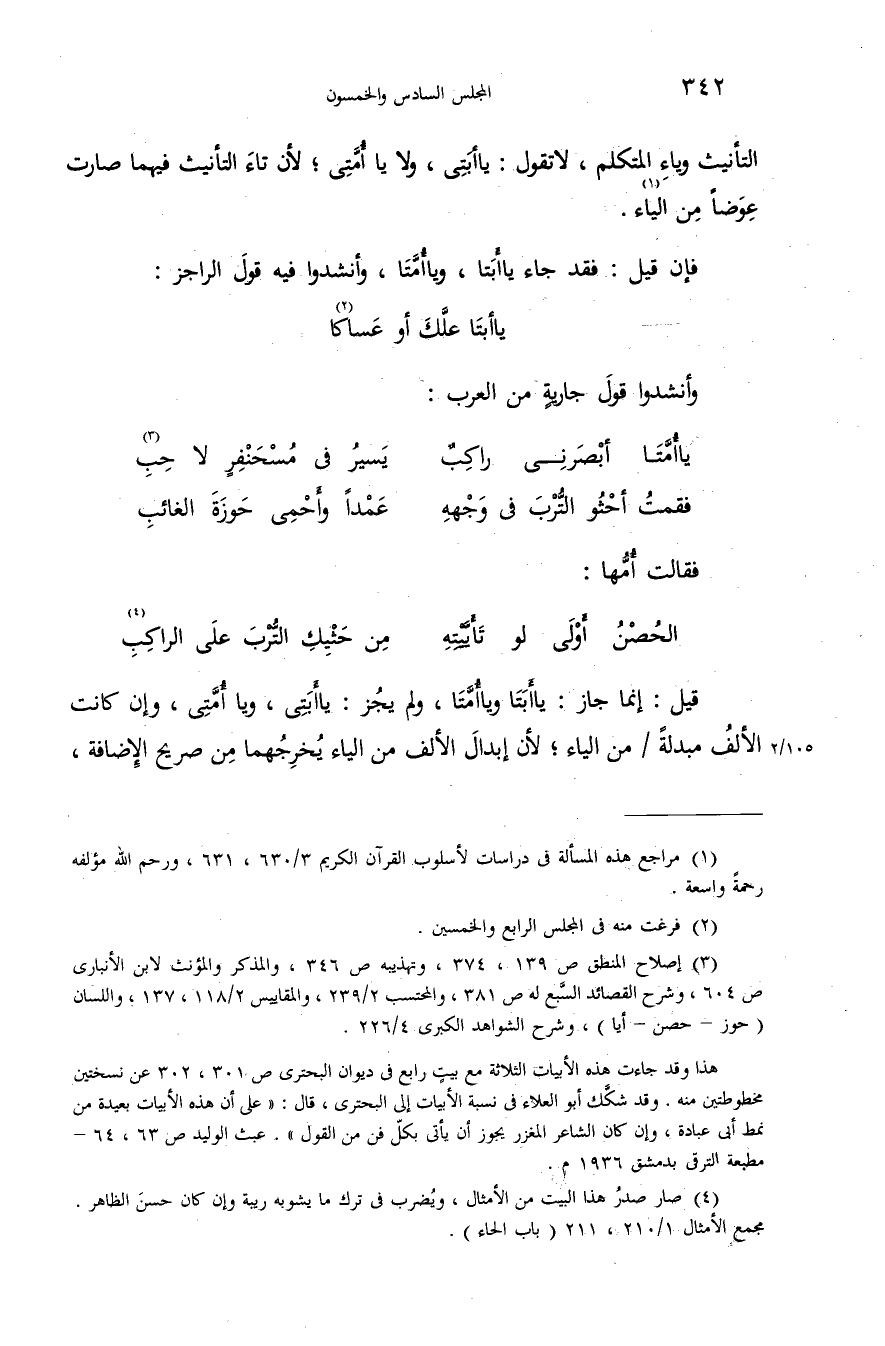 ٣٤٢
المجلس السادس والخمسون
التأنيث وياءِ المتكلم ، لاتقول : ياأبَتِى ، ولا يا أُمَّتِى ؛ لأن تاءَ التأنيث فيهما صارت
عِوَضاً مِن الياء(١) .
فإن قيل : فقد جاء ياأبَتا ، وياأُمَّتَا ، وأنشدوا فيه قولَ الراجز :
ياأبتَا علَّكَ أو عَساكا(٢)
وأنشدوا قولَ جاريةٍ من العرب :
ياأُمَّتَا أبْصَرَنِى راكِبٌ يَسيرُ فى مُسْحَنْفِرٍ لا حِبِ(٣)
فقمتُ أحْثُو التُّرْبَ فى وَجْههِ عَمْداً وأَحْمِى حَوزَةَ الغائبِ
فقالت أُمُّها :
الحُصْنُ أَوْلَى لو تَأَيَّيْتِهِ مِن حَثْيِكِ التُّرْبَ علَى الراكِبِ(٤)
قيل : إنما جاز : ياأَبَتَا وياأُمَّتَا ، ولم يجُز : ياأَبَتِى ، ويا أُمَّتِى ، وإن كانت
٢/١٠٥ الألفُ مبدلةً / من الياء ؛ لأن إبدالَ الألف من الياء يُخرِجُهما مِن صريح الإضافة ،
(١) مراجع هذه المسألة فى دراسات لأسلوب القرآن الكريم ٦٣٠/٣ ، ٦٣١ ، ورحم الله مؤلفه
رحمةً واسعة .
(٢) فرغت منه فى المجلس الرابع والخمسين .
(٣) إصلاح المنطق ص ١٣٩ ، ٣٧٤ ، وتهذيبه ص ٣٤٦ ، والمذكر والمؤنث لابن الأنبارى
ص ٦٠٤ ، وشرح القصائد السَّبع له ص ٣٨١ ، والمحتسب ٢٣٩/٢ ، والمقاييس ١١٨/٢ ، ١٣٧ ، واللسان
( حوز – حصن – أيا ) ، وشرح الشواهد الكبرى ٢٢٦/٤ .
هذا وقد جاءت هذه الأبيات الثلاثة مع بيتٍ رابع فى ديوان البحترى ص ٣٠١ ، ٣٠٢ عن نسختين
مخطوطتين منه . وقد شكَّك أبو العلاء فى نسبة الأبيات إلى البحترى ، قال : « على أن هذه الأبيات بعيدة من
نمط أبى عبادة ، وإن كان الشاعر المغزر يجوز أن يأتى بكلّ فن من القول » . عبث الوليد ص ٦٣ ، ٦٤ –
مطبعة الترقى بدمشق ١٩٣٦ م .
(٤) صار صدرُ هذا البيت من الأمثال ، ويُضرب فى ترك ما يشوبه ريبة وإن كان حسنَ الظاهر .
مجمع الأمثال ٢١٠/١ ، ٢١١ ( باب الحاء ) .